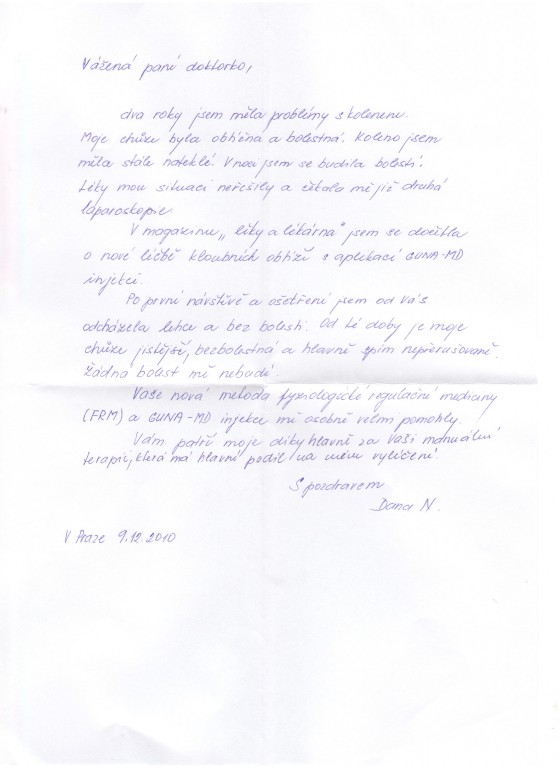 Vážená paní doktorko,
dva roky jsem měla problémy s kolenem.
Moje chůze byla obtížná a bolestná. Koleno jsem
měla stále nateklé. V noci jsem se budila bolestí.
Léky mou situaci neřešily a čekala mě již druhá
laparoskopie.
V magazínu „léky a lékárna" jsem se dočetla
o nové léčbě kloubních obtíží s aplikací GUNA-MD
injekcí.
Po první návštěvě a ošetření jsem od Vás
odcházela lehce a bez bolesti. Od té doby je moje
chůze jistější, bezbolestná a hlavně spím nepřerušovaně.
Žádná bolest mě nebudí.
Vaše nová metoda fyziologické regulační medicíny
(FRM) a GUNA-MD injekce mi osobně velmi pomohly.
Vám patří moje díky hlavně za Vaši manuální
terapii, která má hlavní podíl na mém vyléčení.
S pozdravem
Dana N.
V Praze 9.12.2010